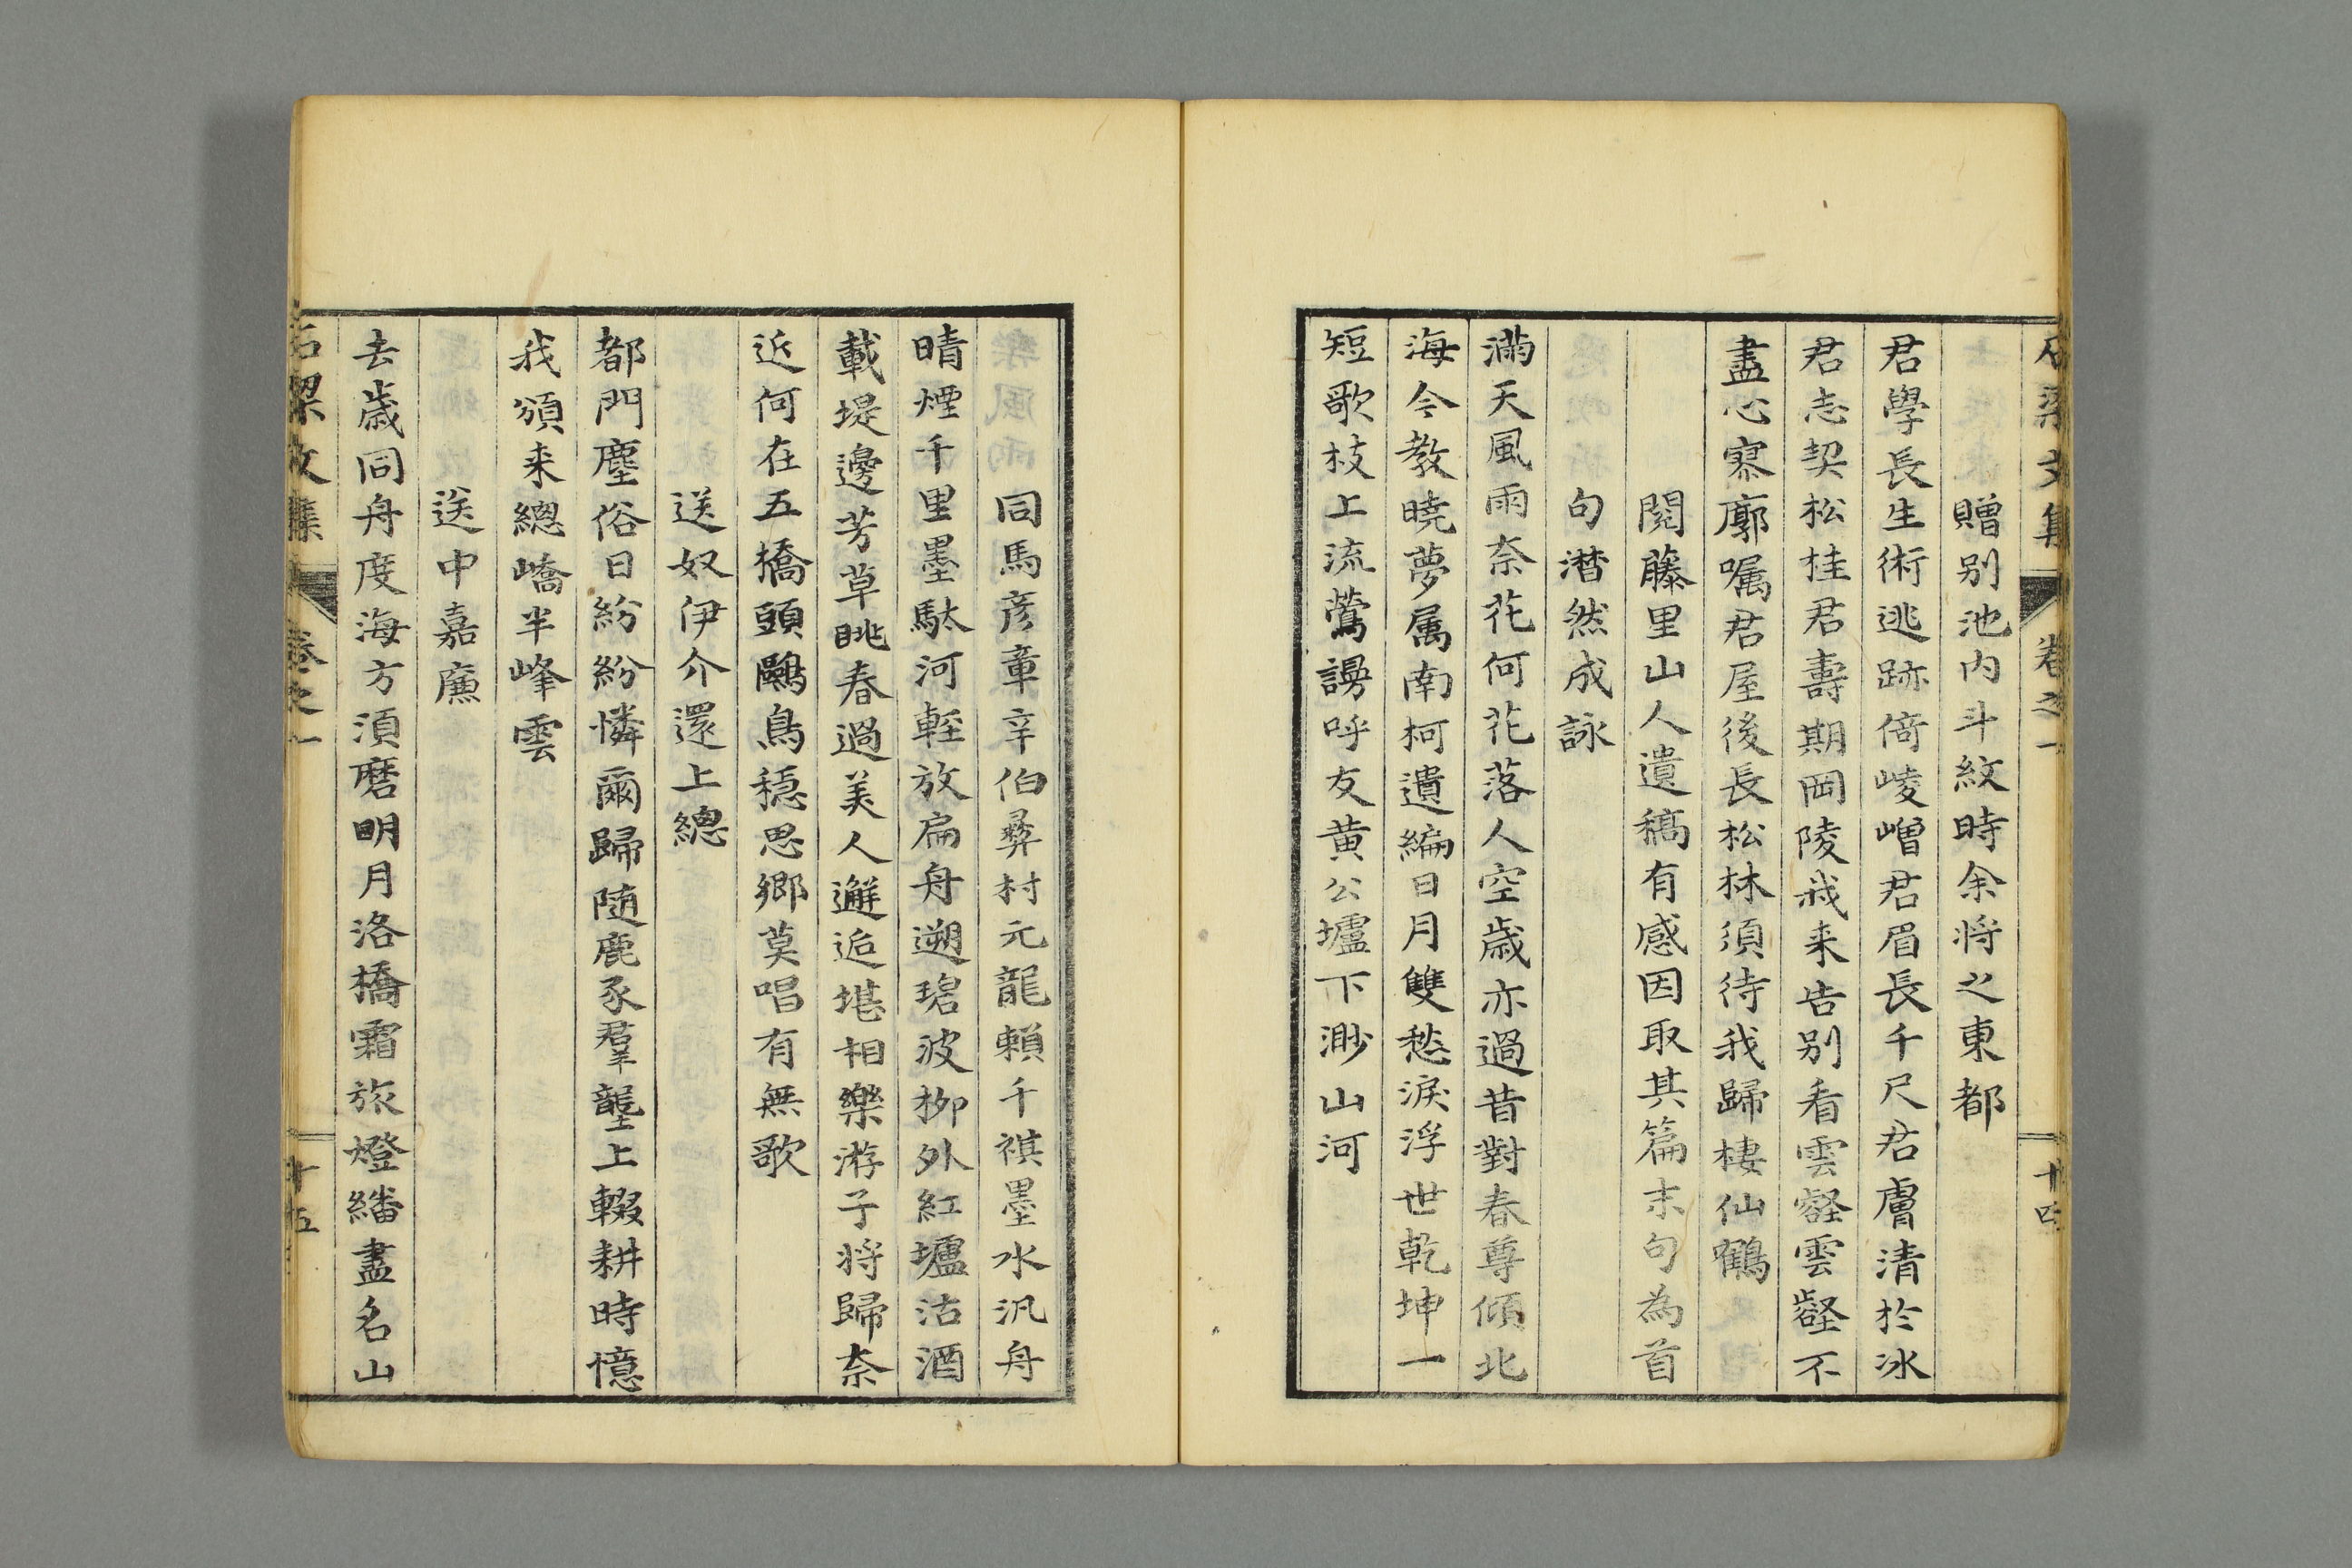 石梁文集 卷之一 十四
贈别池内斗紋時余将之東都
君學長生術逃跡倚崚嶒君眉長千尺君膚清於冰
君志契松桂君壽期岡陵我来告别看雲壑雲壑不
盡心寥廓嘱君屋後長松林須待我歸棲仙鶴
閲藤里山人遺稿有感因取其篇末句為首
句潜然成詠
滿天風雨奈花何花落人空歳亦過昔對春尊傾北
海今教曉夢属南柯遺編日月雙愁淚浮世乾坤一
短歌枝上流鶯謾呼友黄公壚下渺山河
同馬彦章辛伯彞村元龍賴千祺墨水汎舟
晴煙千里墨駄河輕放扁舟遡碧波柳外紅壚沽酒
載堤邊芳草眺春過美人邂逅堪相樂游子将歸奈
近何在五橋頭鷗鳥穏思郷莫唱有無歌
送奴伊介還上總
都門塵俗日紛紛憐爾歸随鹿豕羣壟上輟耕時憶
我頒来總嶠半峰雲
送中嘉㢘
去歳同舟度海方湏磨明月洛橋霜旅燈繙盡名山
石梁文集 卷之一 十五